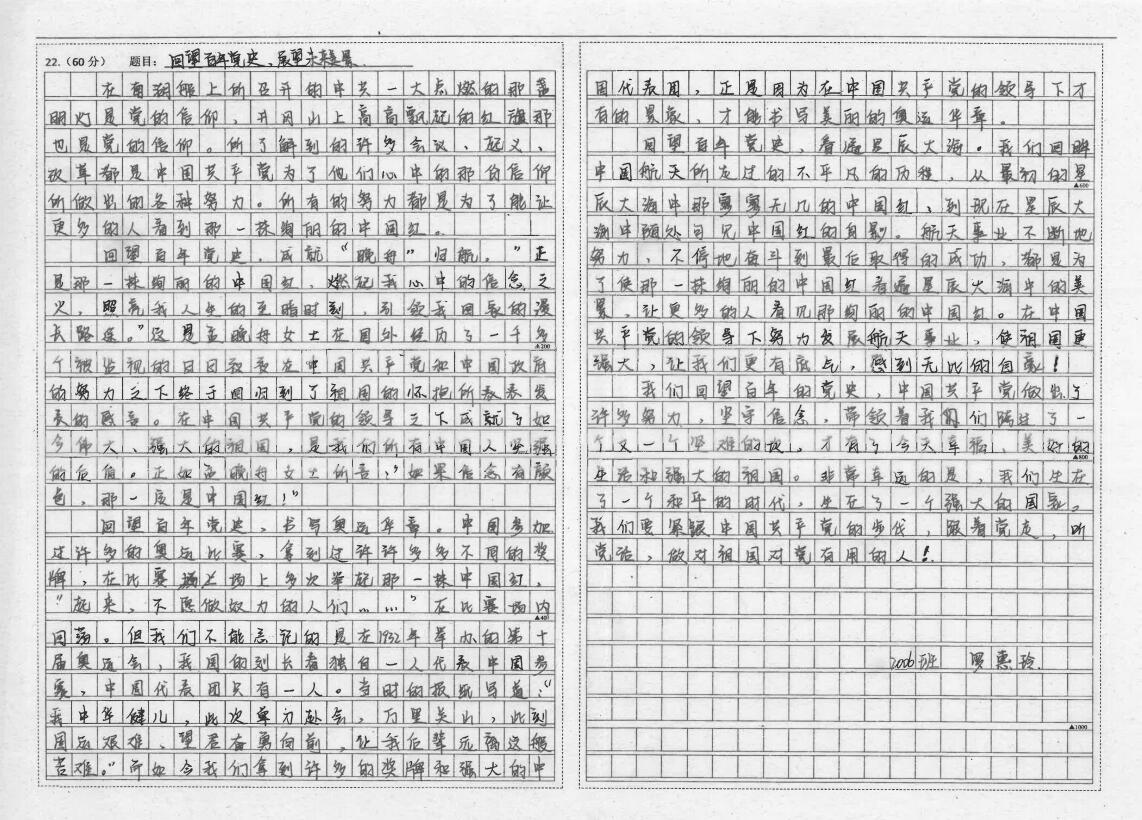 22.（60分） 题目：回望百年党史、展望未来美景
在南湖艇上所召开的中共一大点燃的那盏
明灯是党的信仰，井冈山上高高飘起的红旗那
也是党的信仰。所了解到的许多会议、起义、
改革都是中国共产党为了他们心中的那份信仰
所做出的各种努力。所有的努力都是为了能让
更多的人看到那一抹绚丽的中国红。
回望百年党史，成就“晚舟”归航。“正
是那一抹绚丽的中国红，燃起我心中的信念之
火，照亮我人生的至暗时刻，引领我回家的漫
长路途。”这是孟晚舟女士在国外经历了一千多
▲200
个被监视的日日夜夜在中国共产党和中国政府
的努力之下终于回归到了祖国的怀抱所发表发
表的感言。在中国共产党的领导之下成就了如
今伟大、强大的祖国，是我们所有中国人坚强
的后盾。正如孟晚舟女士所言，“如果信念有颜
色，那一定是中国红！”
回望百年党史，书写奥运华章。中国参加
过许多的奥运比赛，拿到过许许多多不同的奖
牌，在比赛场上多次举起那一抹中国红，
“起来，不愿做奴力的人们……”在比赛场内
▲400
回荡。但我们不能忘记的是在1932年举办的第十
届奥运会，我国的刘长春独自一人代表中国参
赛，中国代表团只有一人。当时的报纸写道：“
我中华健儿，此次单刀赴会，万里关山，此刻
国运艰难，望君奋勇向前，让我后辈远离这般
苦难。”而如今我们拿到许多的奖牌和强大的中
国代表团，正是因为在中国共产党的领导下才
有的景象，才能书写美丽的奥运华章。
回望百年党史，看遍星辰大海。我们回眸
中国航天所走过的不平凡的历程，从最初的星
▲600
辰大海中那寥寥无几的中国红，到现在星辰大
海中随处可见中国红的身影。航天事业不断地
努力，不停地奋斗到最后取得的成功，都是为
了使那一抹绚丽的中国红看遍星辰大海中的美
景，让更多的人看见那绚丽的中国红。在中国
共产党的领导下努力发展航天事业，使祖国更
强大，让我们更有底气，感到无比的自豪！
我们回望百年的党史，中国共产党做出了
许多努力，坚守信念，带领着我们们踏过了一
个又一个坚难的坎，才有了今天幸福、美好的
▲800
生活和强大的祖国。非常幸运的是，我们生在
了一个和平的时代，生在了一个强大的国家。
我们要紧跟中国共产党的步伐，跟着党走，听
党话，做对祖国对党有用的人！
2006班 罗惠玲
▲1000